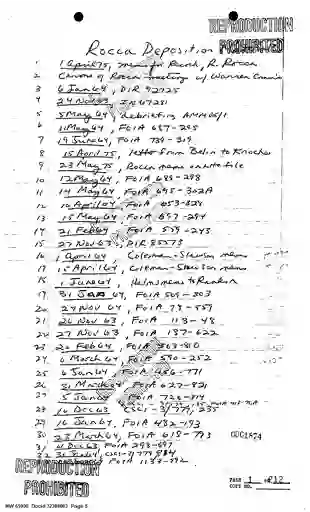 REPRODUCTION
PROHIBITED
Rocca Deposition
1 1 April 75, memo for Record, R. Rocca
2 of Rocca meeting w/ Warren
3 6 Jan 64, DIR 92725
4 24 Nov 63, IN 67281
5 5 May 64, debriefing AMMUG/1
6 11 May 64, FOIA 687-295
7 19 June 64, FOIA 739-319
8 15 April 75, letter from Belin to Knoche
9 23 May 75, Rocca memo
10 12 May 64, FOIA 689-298
11 14 May 64, FOIA 695-302A
12 10 April 64, FOIA 653-828
13 15 May 64, FOIA 697-294
14 21 Feb 64, FOIA 559-243
15 27 Nov 63, DIR 85573
16 1 April 64, Coleman-Slawson memo
17 15 April 64, Coleman-Slawson memo
18 1 June 64, Helms memo to Rankin
19 31 Jan 64, FOIA 509-803
20 24 Nov 64, FOIA
21 26 Nov 63, FOIA 113-48
22 27 Nov 63, FOIA 187-622
23 20 Feb 64, FOIA -810
24 6 March 64, FOIA 590-252
25 6 Jan 64, FOIA 456-771
26 31 March 64, FOIA 627-821
27 5 Jan 64, FOIA 720-814
28 16 Dec 63, CSCI-3/779, 235
29 16 Jan 64, FOIA 482-193
30 23 March 64, FOIA 618-793
31 Dec 63, FOIA 298-697
32 CSCI-3/779
FOIA 1133-992
REPRODUCTION
PROHIBITED
PAGE 1 OF 12
COPY NO.
NW 65990 Docid:32388003 Page 5